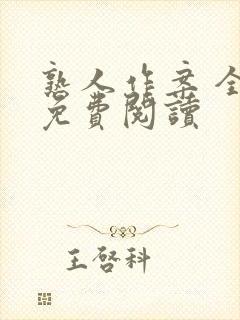 熟人作案全
免費閱讀
王啓科